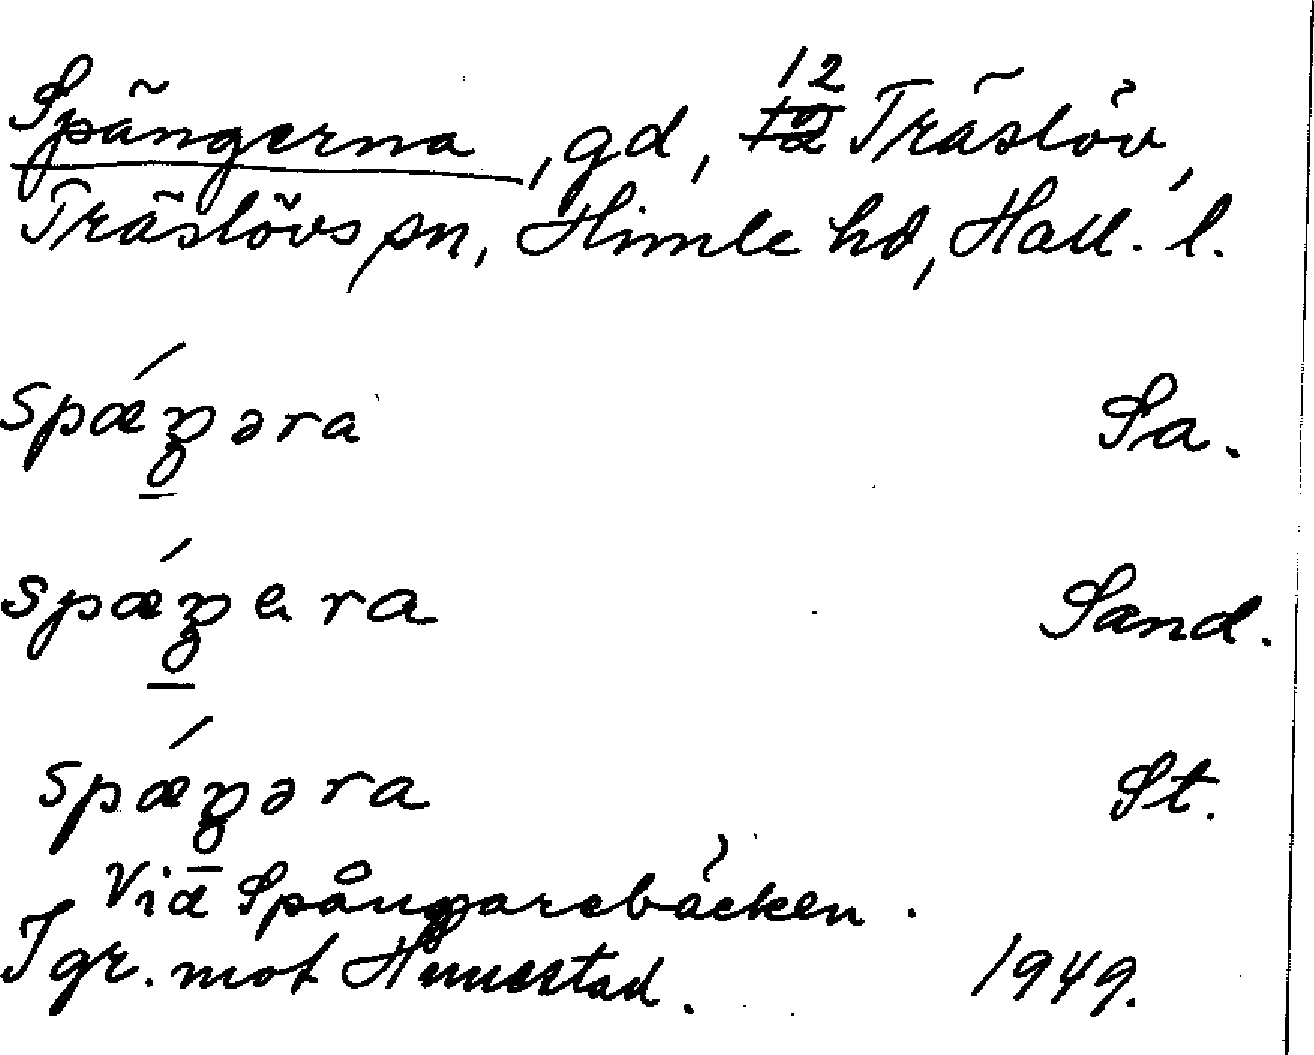 Spängerna, gd, 12 Träslöv,
Träslövs sn, Himle hd, Hall. l.
spǽŋəra Sa.
spǽŋera Sand.
spǽŋəra St.
Vid Spångarebäcken.
I gr. mot Hunestad. 1949.